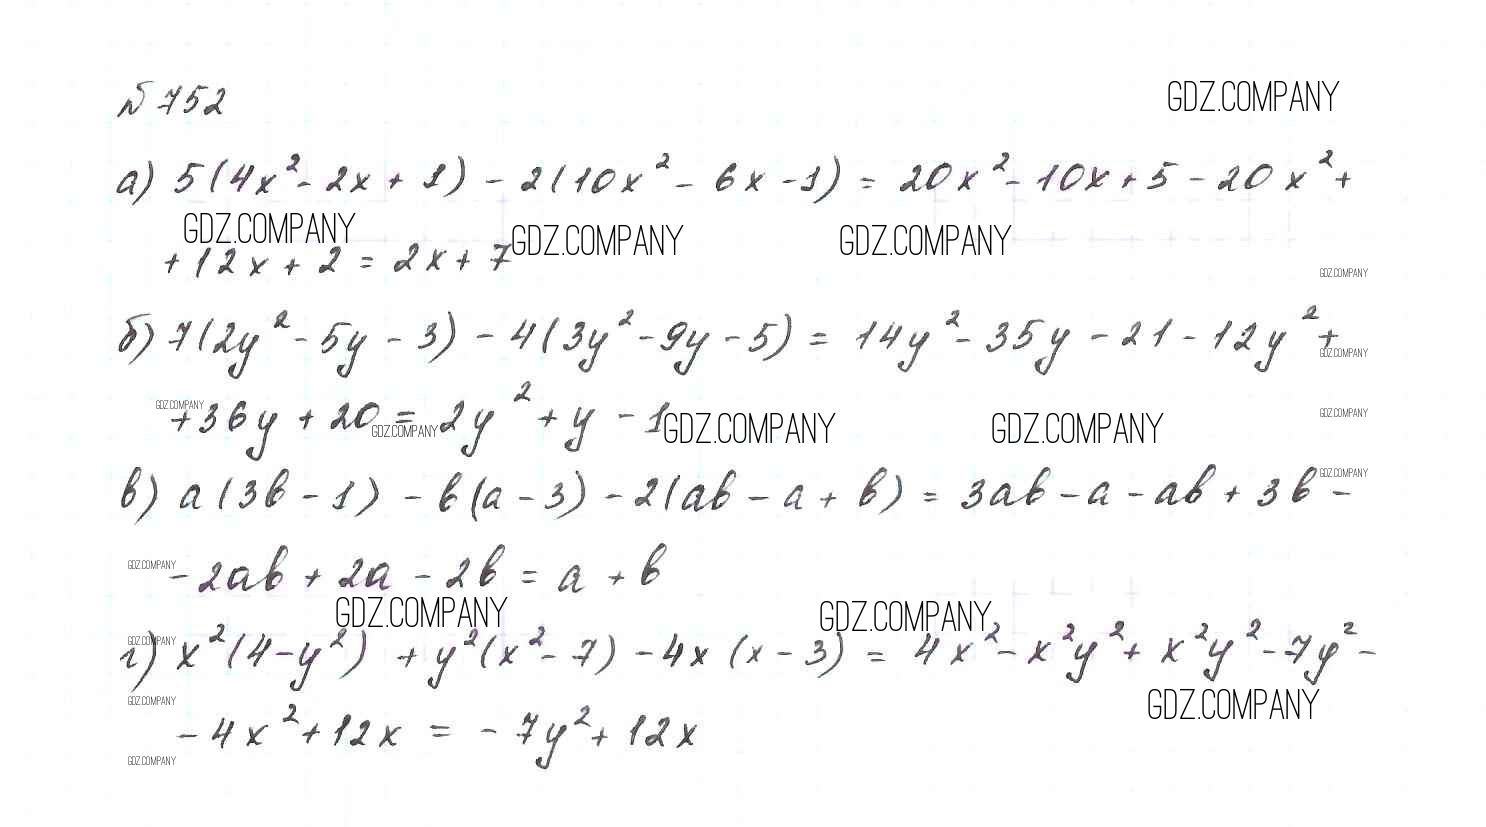 № 752
GDZ.COMPANY
а) 5(4x² - 2x + 1) - 2(10x² - 6x - 1) = 20x² - 10x + 5 - 20x² +
GDZ.COMPANY GDZ.COMPANY GDZ.COMPANY
+ 12x + 2 = 2x + 7
GDZ.COMPANY
б) 7(2y² - 5y - 3) - 4(3y² - 9y - 5) = 14y² - 35y - 21 - 12y² +
GDZ.COMPANY
GDZ.COMPANY GDZ.COMPANY
+ 36y + 20 = 2y² + y - 1
GDZ.COMPANY GDZ.COMPANY GDZ.COMPANY
GDZ.COMPANY
в) a(3b - 1) - b(a - 3) - 2(ab - a + b) = 3ab - a - ab + 3b -
GDZ.COMPANY
- 2ab + 2a - 2b = a + b
GDZ.COMPANY GDZ.COMPANY
GDZ.COMPANY
г) x²(4 - y²) + y²(x² - 7) - 4x(x - 3) = 4x² - x²y² + x²y² - 7y² -
GDZ.COMPANY GDZ.COMPANY
- 4x² + 12x = - 7y² + 12x
GDZ.COMPANY